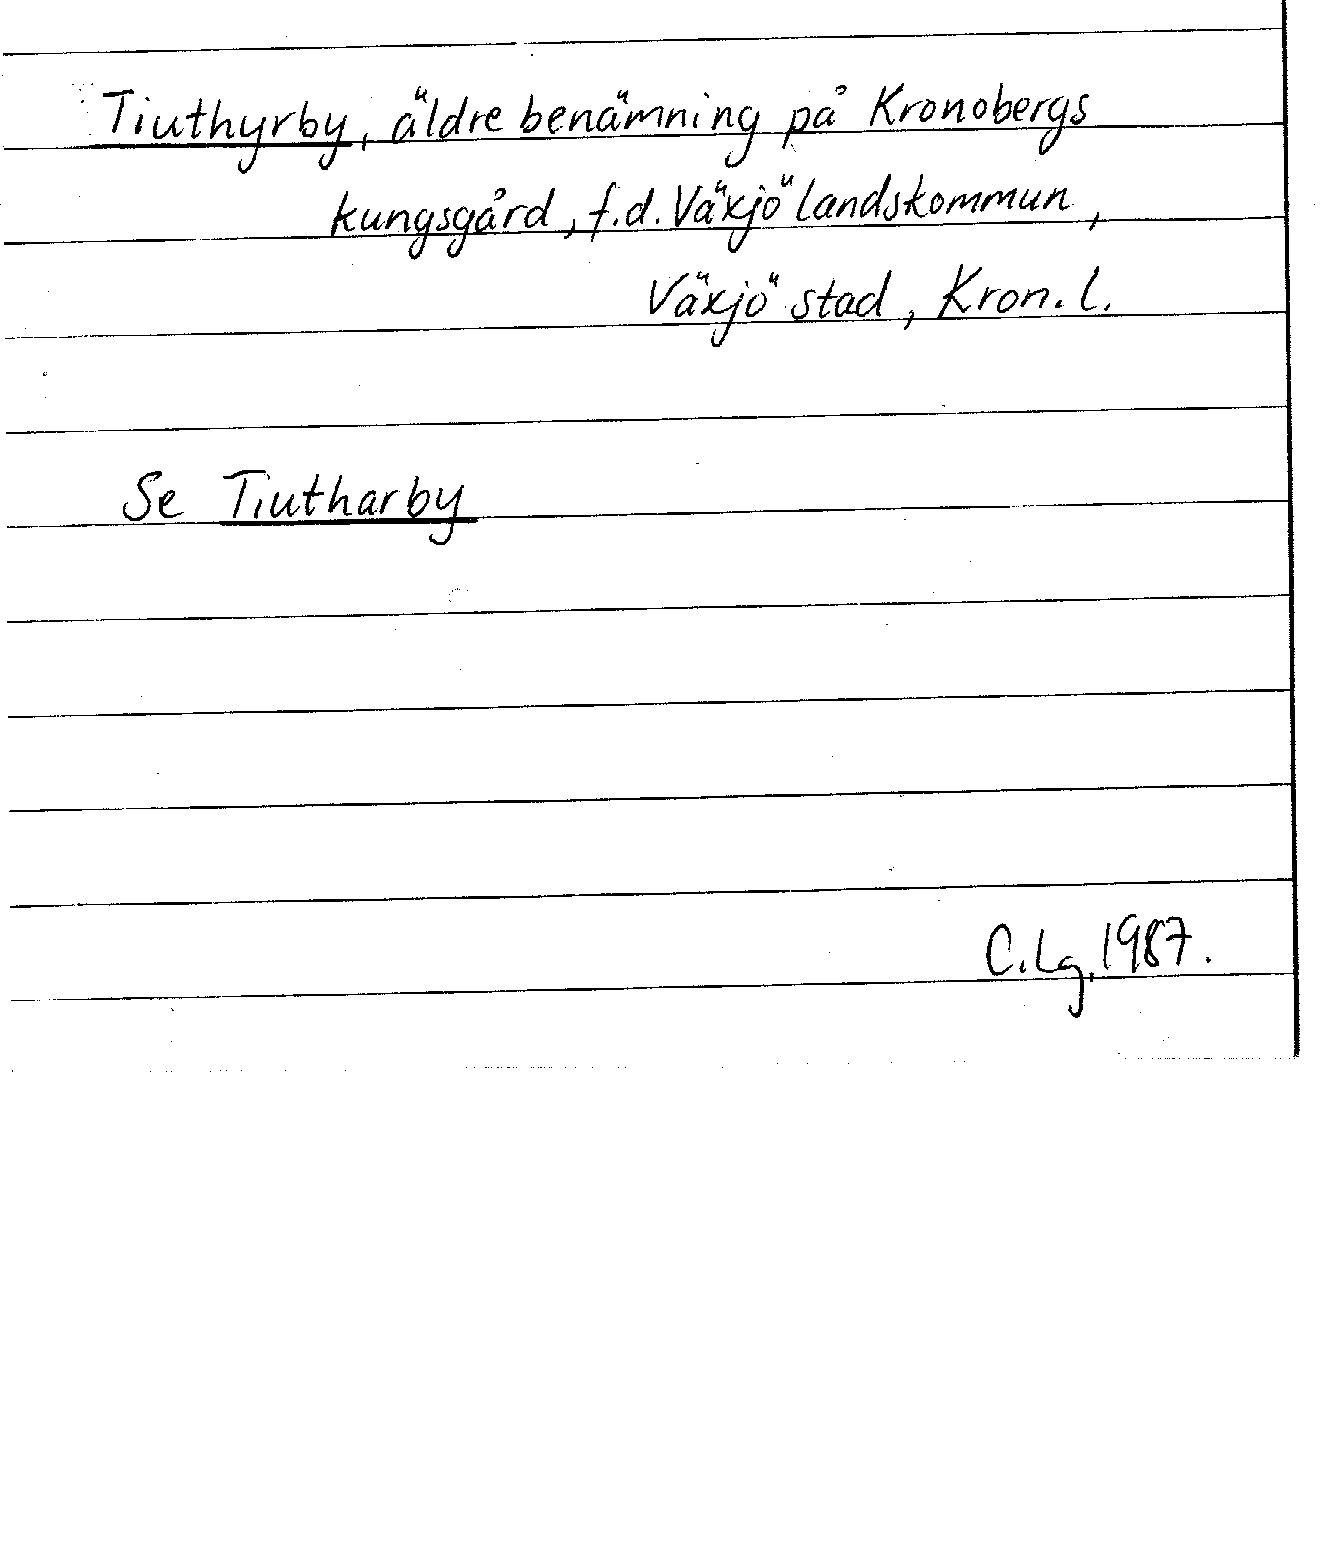 Tiuthyrby, äldre benämning på Kronobergs
kungsgård, f.d. Växjö landskommun,
Växjö stad, Kron. l.
Se Tiutharby
C. Lg. 1987.